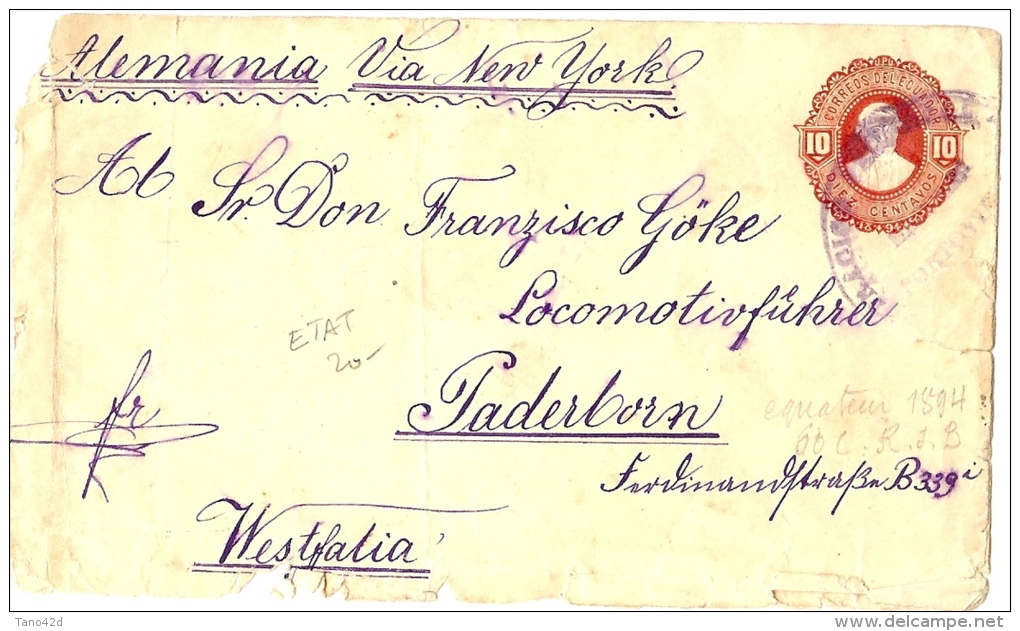 Alemania Via New York
U.P.U.
CORREOS DEL ECUADOR
10 10
DIEZ CENTAVOS
1894
Al Sr. Don Franzisco Göke
Locomotivführer
ETAT
20-
Paderborn
fr
equateur 1894
60 C. R.J.B
Ferdinandstraße B 339 i
Westfalia
Tano42d